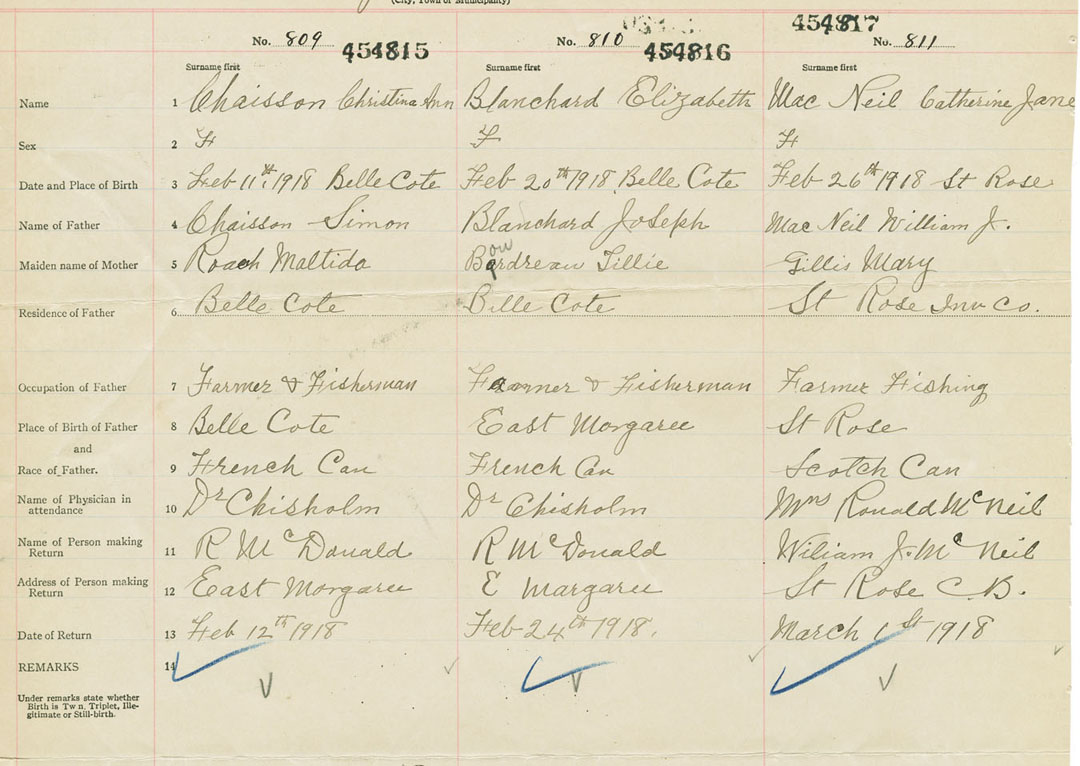 (City, Town or Municipality)
No. 809 454815 No. 810 454816 454817 No. 811
Surname first Surname first Surname first
Name 1 Chaisson Christina Ann Blanchard Elizabeth Mac Neil Catherine Jane
Sex 2 F F F
Date and Place of Birth 3 Feb 11th 1918 Belle Cote Feb 20th 1918 Belle Cote Feb 26th 1918 St Rose
Name of Father 4 Chaisson Simon Blanchard Joseph Mac Neil William J.
Maiden name of Mother 5 Roach Maltida Tillie Gillis Mary
Residence of Father 6 Belle Cote Bille Cote St Rose Inv Co.
Occupation of Father 7 Farmer & Fisherman Farmer & Fisherman Farmer Fishing
Place of Birth of Father 8 Belle Cote East Morgaree St Rose
and
Race of Father. 9 French Can French Can Scotch Can
Name of Physician in
attendance 10 Dr Chisholm Dr Chisholm Mrs Ronald Mc Neil
Name of Person making
Return 11 R Mc Donald R Mc Donald Wiliam J. Mc Neil
Address of Person making
Return 12 East Morgaree E Margaree St Rose C.B.
Date of Return 13 Feb 12th 1918 Feb 24th 1918. March 1st 1918
REMARKS 14
Under remarks state whether
Birth is Tw n, Triplet, Ille-
gitimate or Still-birth.